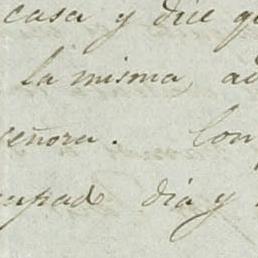 casa y dice qu
la misma, ad
señora. Con
cupado dia y